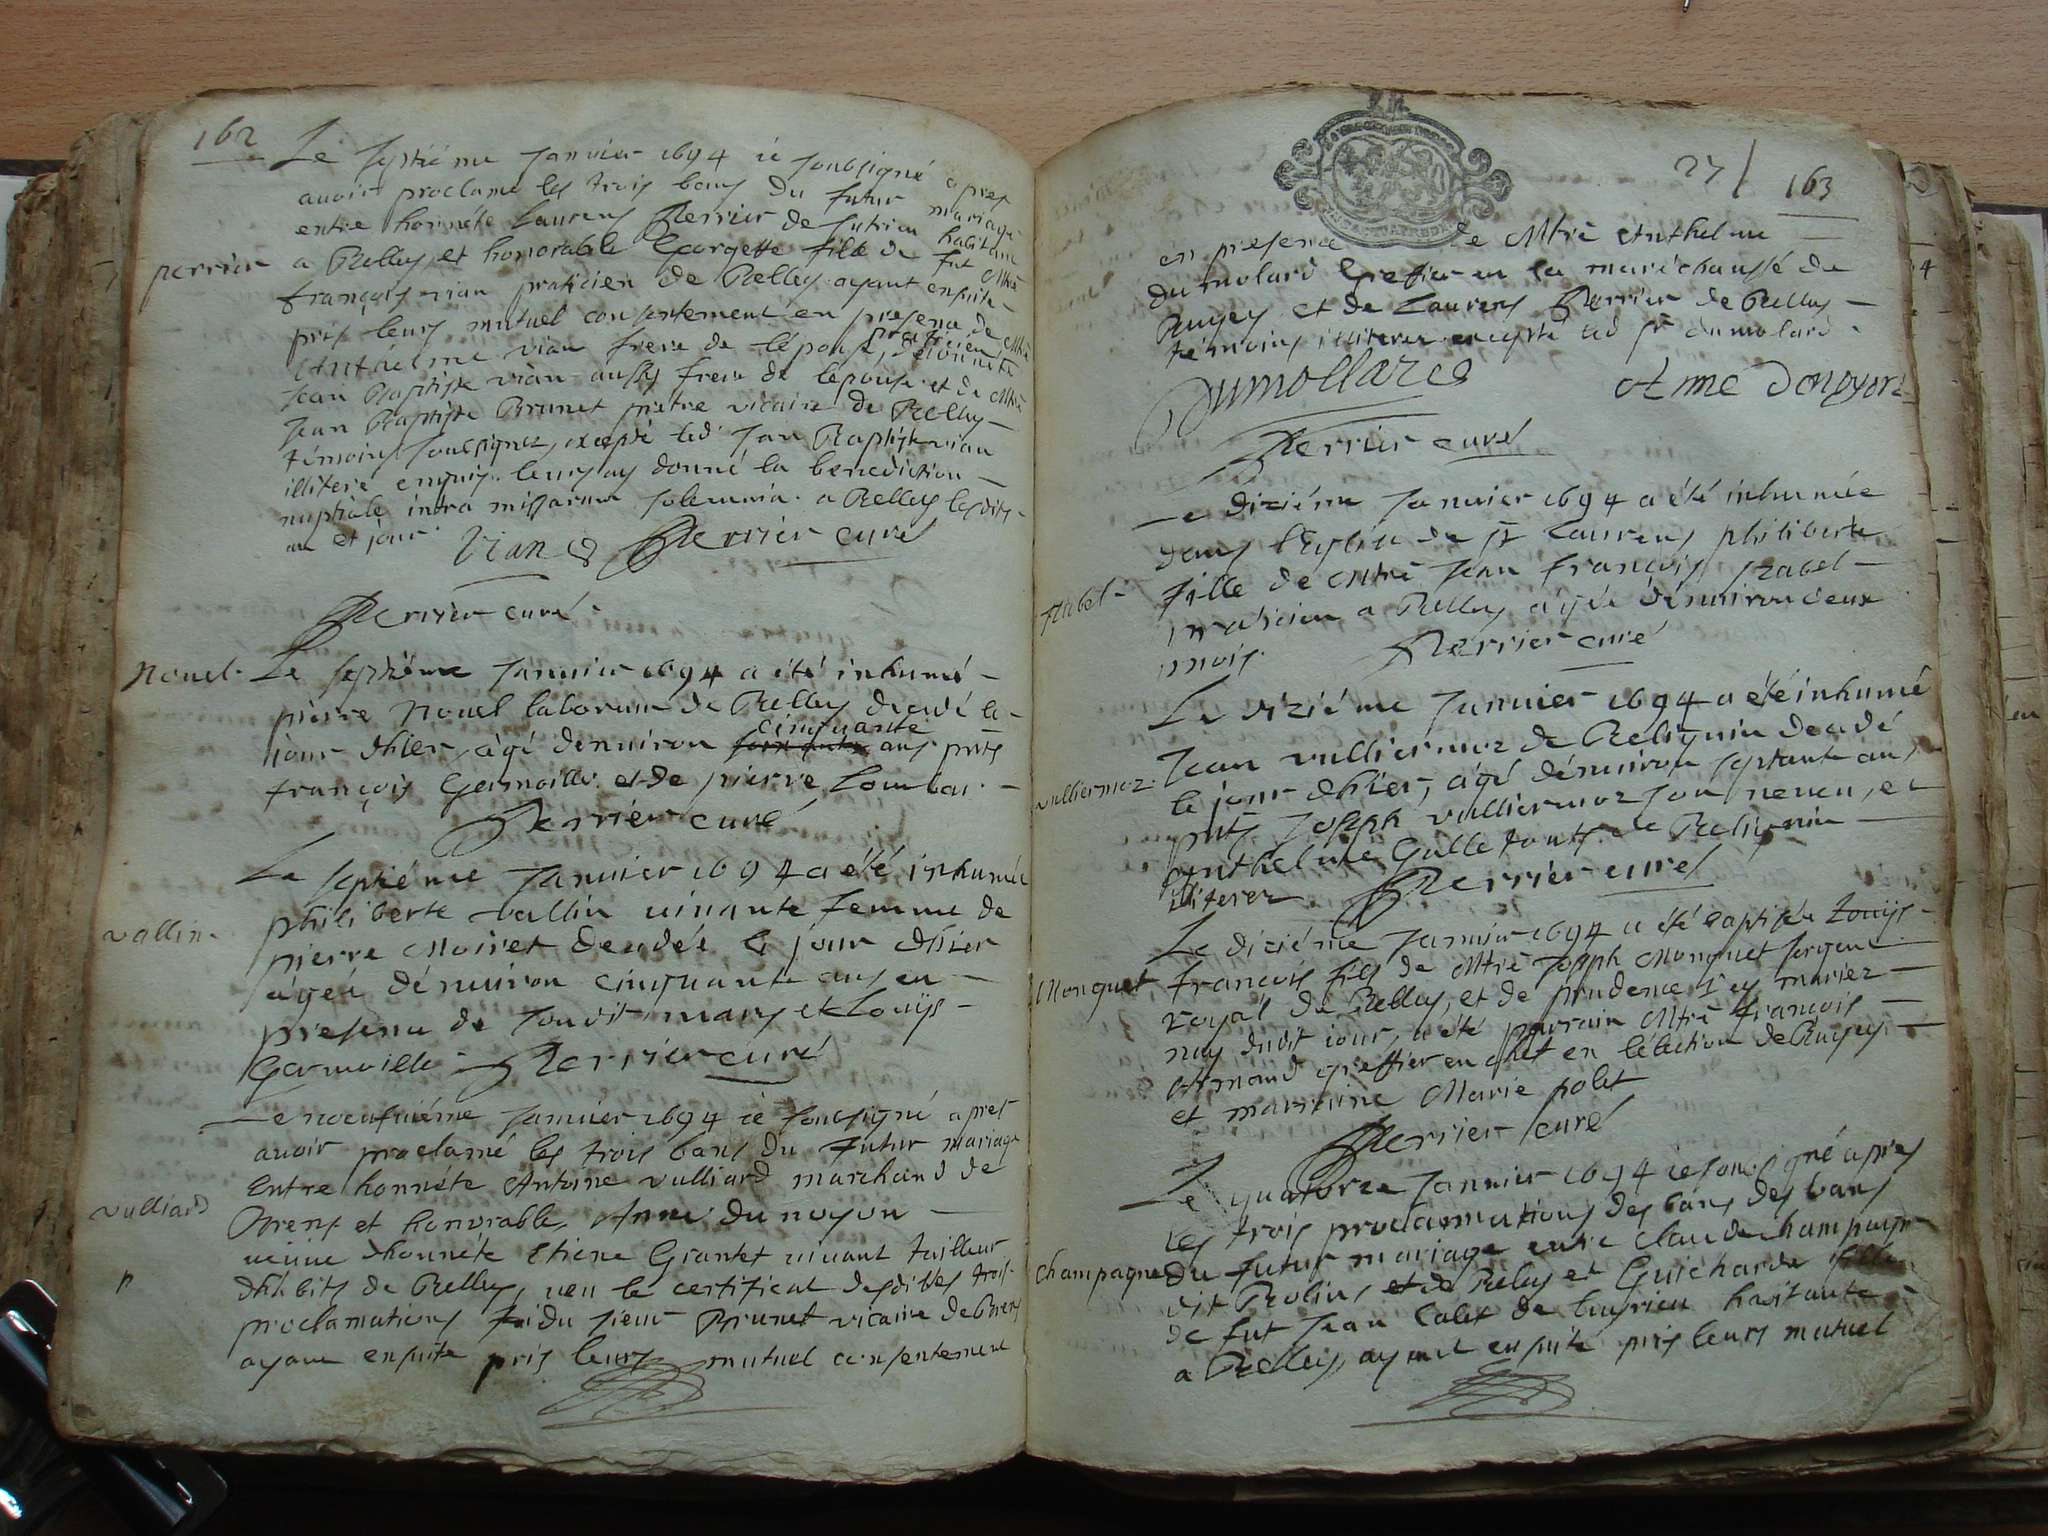 162
Le septiéme Janvier 1694 ie soubsigné apres
avoir proclamé les trois bans du futur mariage
entre honnéte Laurens Perrier de Sutrieu habitant
perrier
a Belley, et honorable Georgette fille de fut Mtre
françois vian praticien de Belley ayant ensuite
pris leurs mutuel consentement en presence de Mtre
Anthelme vian frere de l'épouse, praticien d'honnéte
Jean Baptiste vian aussy frere de l'épouse et de Mtre
Jean Baptiste Brunet prétre vicaire de Belley
témoins soubsignez, excepté led Jean Baptiste vian
illiteré enquis. leurs ay donné la benediction
nuptiale intra missarum solemnia. a Belley lesdits
an et jour. Vian Perrier curé
Perrier curé
Nouel
Le septiéme Janvier 1694 a été inhumé
pierre Nouel laboureur de Belley decedé le
cinquante
jour d'hier, agé d'environ ans prts
françois Germoille et de pierre Lombar
Perrier curé
Le septiéme Janvier 1694 a été inhumée
vallin
philiberte vallin vivante femme de
pierre Moiret decedée le jour d'hier
agée d'environ cinquante ans en
presence de soudit mary et Louys
Germoille Perrier curé
Le noeufuiéme Janvier 1694 ie soubsigné apres
avoir proclamé les trois bans du futur mariage
Entre honnéte Antoine vulliard marchand de
vulliard
Brens et honorable, Anne du noyon
veuve d'honnéte Etiene Grantet vivant tailleur
d'habits de Belley, veu le certificat desdittes trois
proclamations du sieur Brunet vicaire de Brens
ayant ensuite pris leurs mutuel consentement
27 / 163
en presence de Mtre Anthelme
dumolard Greffier en la maréchaussé de
Bugey et de Laurens Perrier de Belley
témoins illiterez excepté led sr dumolard
Dumollard Anne Donoyon
Perrier curé
Le diziéme Janvier 1694 a été inhumée
dans l'Eglise de st Laurens philiberte
fille de Mtre Jean françois Jzabel
praticien a Belley agée d'environ deux
mois. Perrier curé
Le diziéme Janvier 1694 a été inhumé
Jean vulliermoz de Belignin decedé
vulliermoz
le jour d'hier, agé d'environ septante ans
prts Joseph vulliermoz son neveu, et
Anthelme Gulle touts de Belignin
illiterez Perrier curé
Le diziéme Janvier 1694 a été baptisée Louys
Monquet
françois fils de Mtre Joseph Monquet sergent
royal de Belley, et de prudence mariez
nay dudit jour, a été parrain Mtre françois
Armand greffier en chef en l'élection de Bugey
et marraine Marie polet
Perrier curé
Le quatorze Janvier 1694 ie soubsigné apres
les trois proclamations des bans des bans
du futur mariage entre Claude Champagne
champagne
dit Rolin, de Belley et Guicharde fille
de fut Jean Calet de luyrieu habitante
a Belley, ayant ensuite pris leurs mutuel